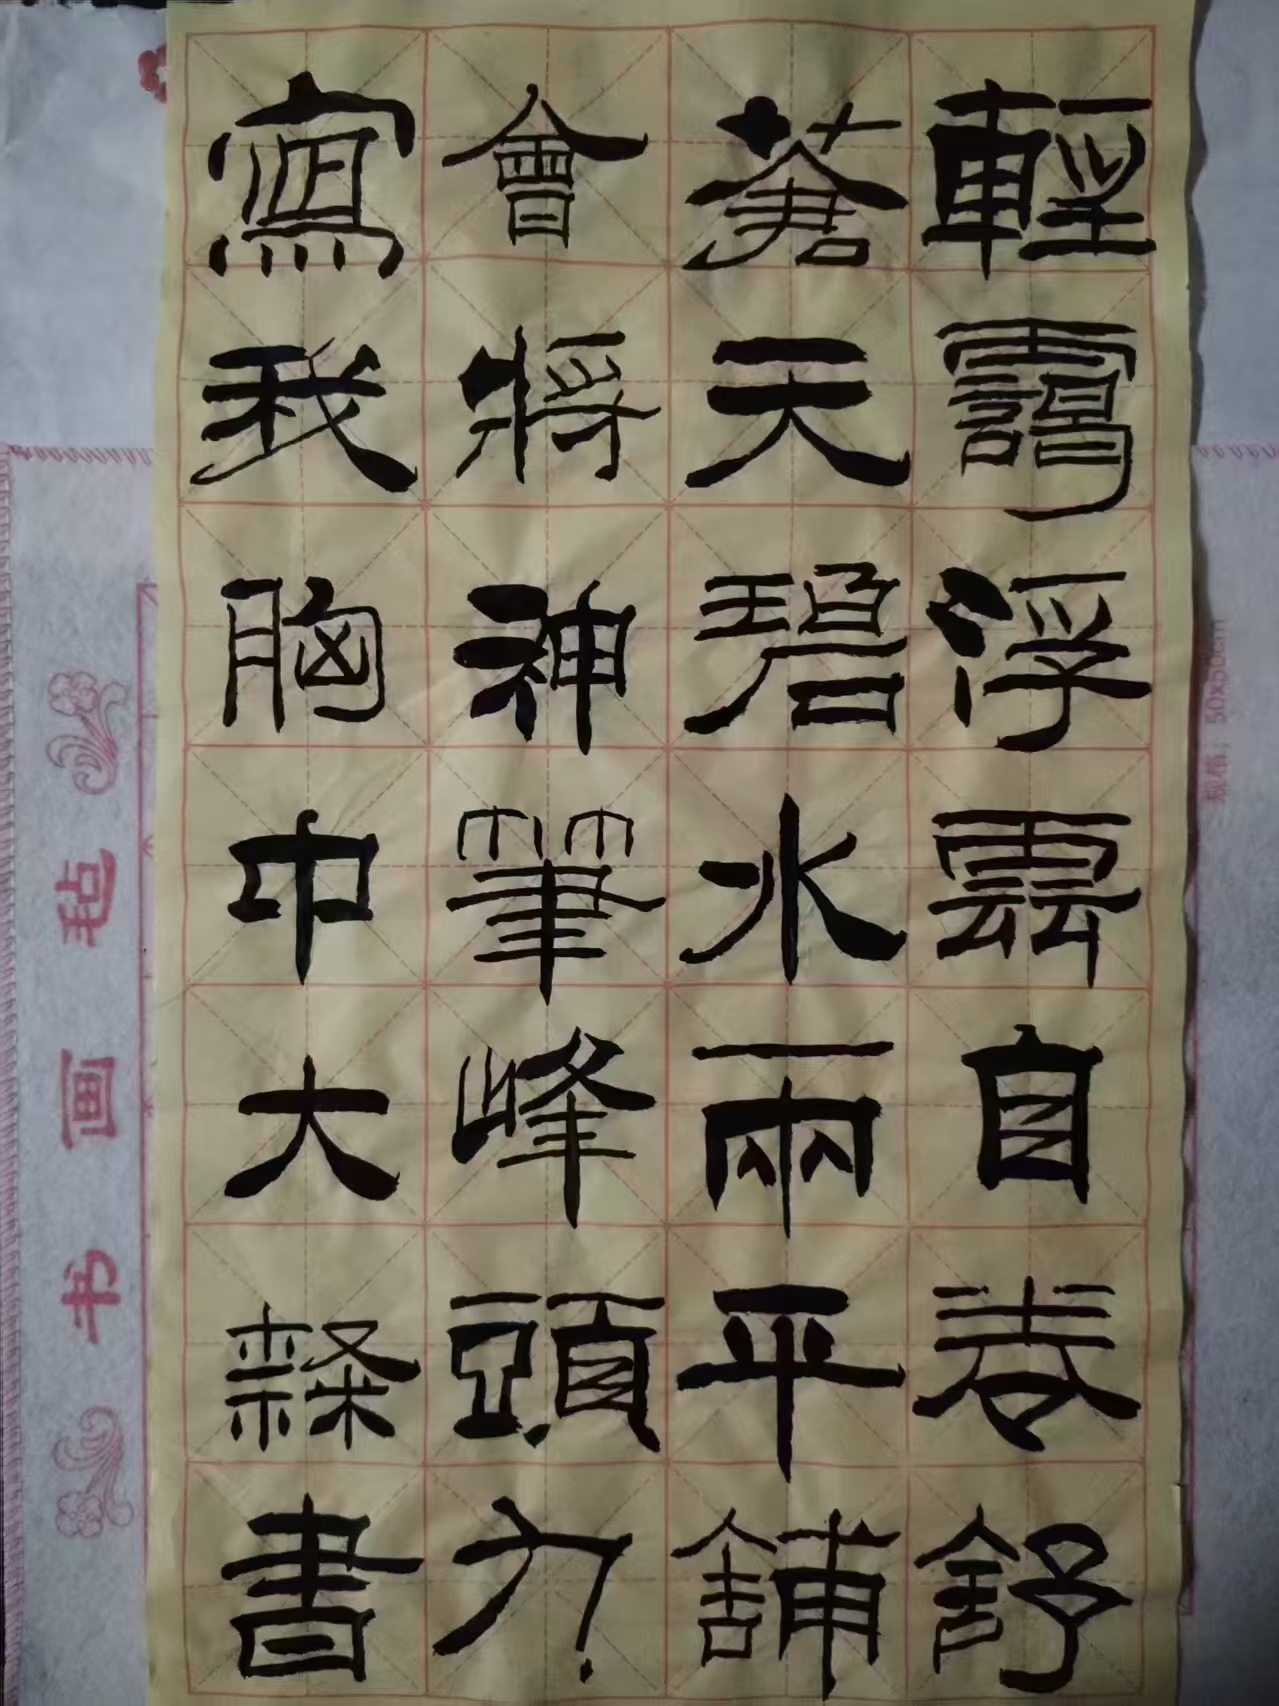 輕靄浮雲自卷舒
蒼天碧水兩平舖
會將神筆峰頭力
寫我胸中大隸書
书画毡
规格：50x50cm